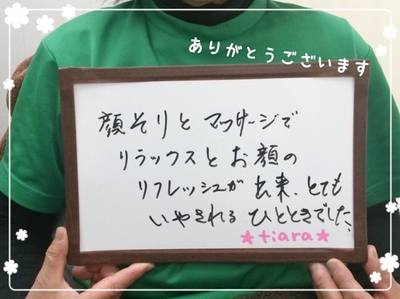 ありがとうございます
顔そりとマッサージで
リラックスとお顔の
リフレッシュが出来、とても
いやされるひとときでした。
★tiara★